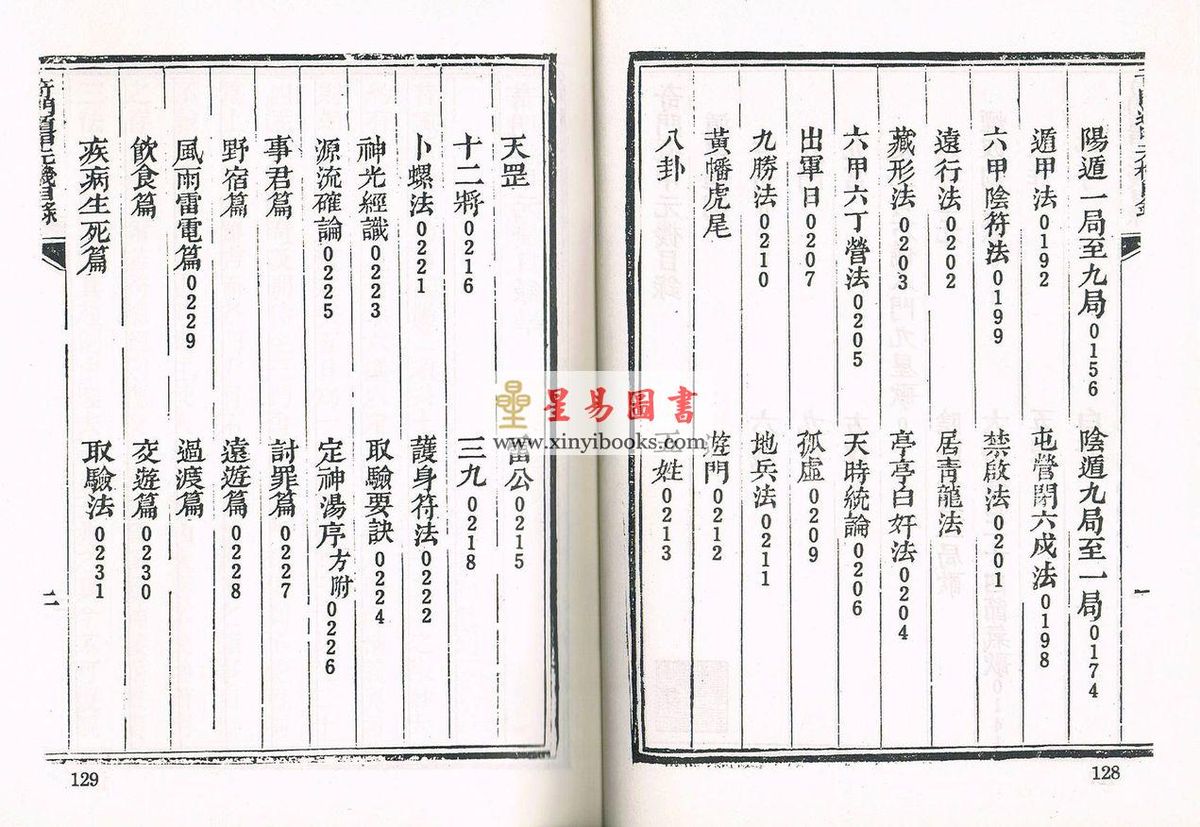 陽遁一局至九局0156 陰遁九局至一局0174
遁甲法0192 屯營閉六戊法0198
六甲陰符法0199 禁啟法0201
遠行法0202 居青龍法
藏形法0203 亭亭白奸法0204
六甲六丁營法0205 天時統論0206
出軍日0207 孤虛0209
九勝法0210 地兵法0211
黃幡虎尾 遊門0212
八卦 五姓0213
一
128
天罡 雷公0215
十二將0216 三九0218
卜螺法0221 護身符法0222
神光經識0223 取驗要訣0224
源流確論0225 定神湯序方附0226
事君篇 討罪篇0227
野宿篇 遠遊篇0228
風雨雷電篇0229 過渡篇
飲食篇 交遊篇0230
疾病生死篇 取驗法0231
奇門遁甲元機目錄
二
129
星易圖書
www.xinyibooks.com